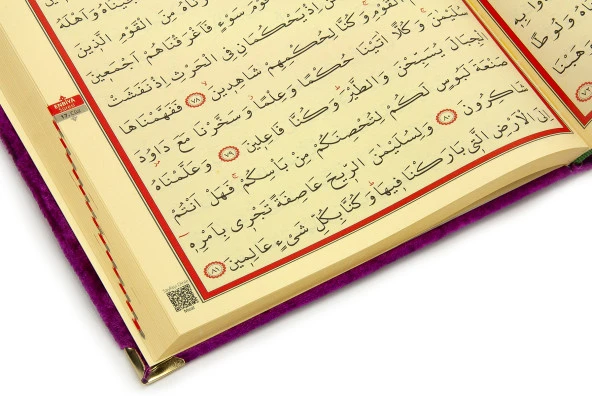 وَاَهْلَهُ
مِنَ الْقَوْمِ الَّذ۪ينَ
قَوْمَ سَوْءٍ فَاَغْرَقْنَاهُمْ اَجْمَع۪ينَ
اِذْ يَحْكُمَانِ فِي الْحَرْثِ اِذْ نَفَشَتْ
الْقَوْمِ وَكُنَّا لِحُكْمِهِمْ شَاهِد۪ينَ ٧٨ فَفَهَّمْنَاهَا
سُلَيْمٰنَ وَكُلًّا اٰتَيْنَا حُكْمًا وَعِلْمًا وَسَخَّرْنَا مَعَ دَاوُدَ
الْجِبَالَ يُسَبِّحْنَ وَالطَّيْرَ وَكُنَّا فَاعِل۪ينَ ٧٩ وَعَلَّمْنَاهُ
صَنْعَةَ لَبُوسٍ لَكُمْ لِتُحْصِنَكُمْ مِنْ بَأْسِكُمْ فَهَلْ اَنْتُمْ
شَاكِرُونَ ٨٠ وَلِسُلَيْمٰنَ الرّ۪يحَ عَاصِفَةً تَجْر۪ي بِاَمْرِه۪
اِلَى الْاَرْضِ الَّت۪ي بَارَكْنَا ف۪يهَا وَكُنَّا بِكُلِّ شَيْءٍ عَالِم۪ينَ ٨١
ENBİYA
17. Cüz
وَلُوطًا
٧٢